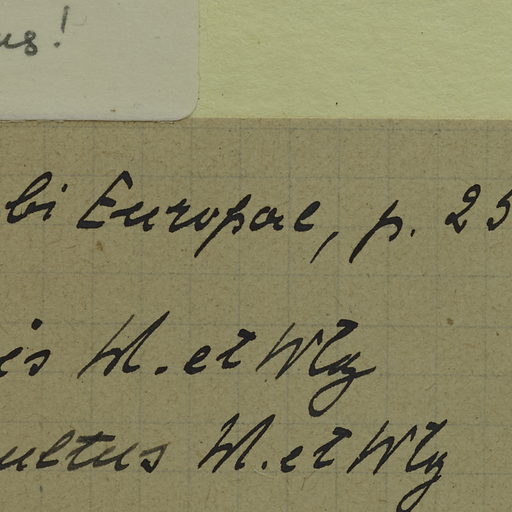 us!
bi Europae, p. 25
is W. et Włg
ultus W. et Włg